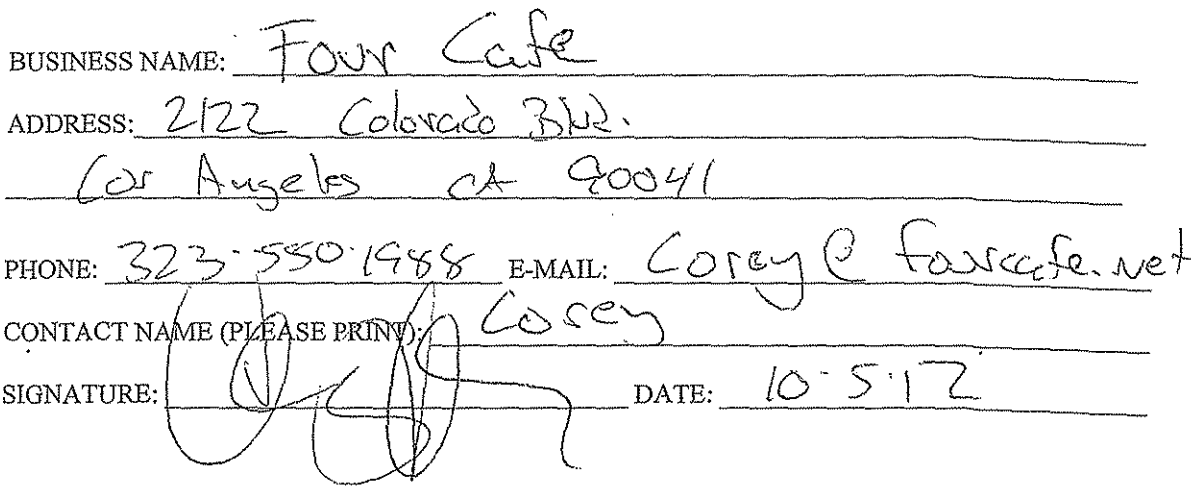 BUSINESS NAME: Four Cafe
ADDRESS: 2122 Colorado Blvd.
Los Angeles CA 90041
PHONE: 323-550-1988 E-MAIL: Corey@fourcafe.net
CONTACT NAME (PLEASE PRINT): Corey
SIGNATURE: DATE: 10-5-12